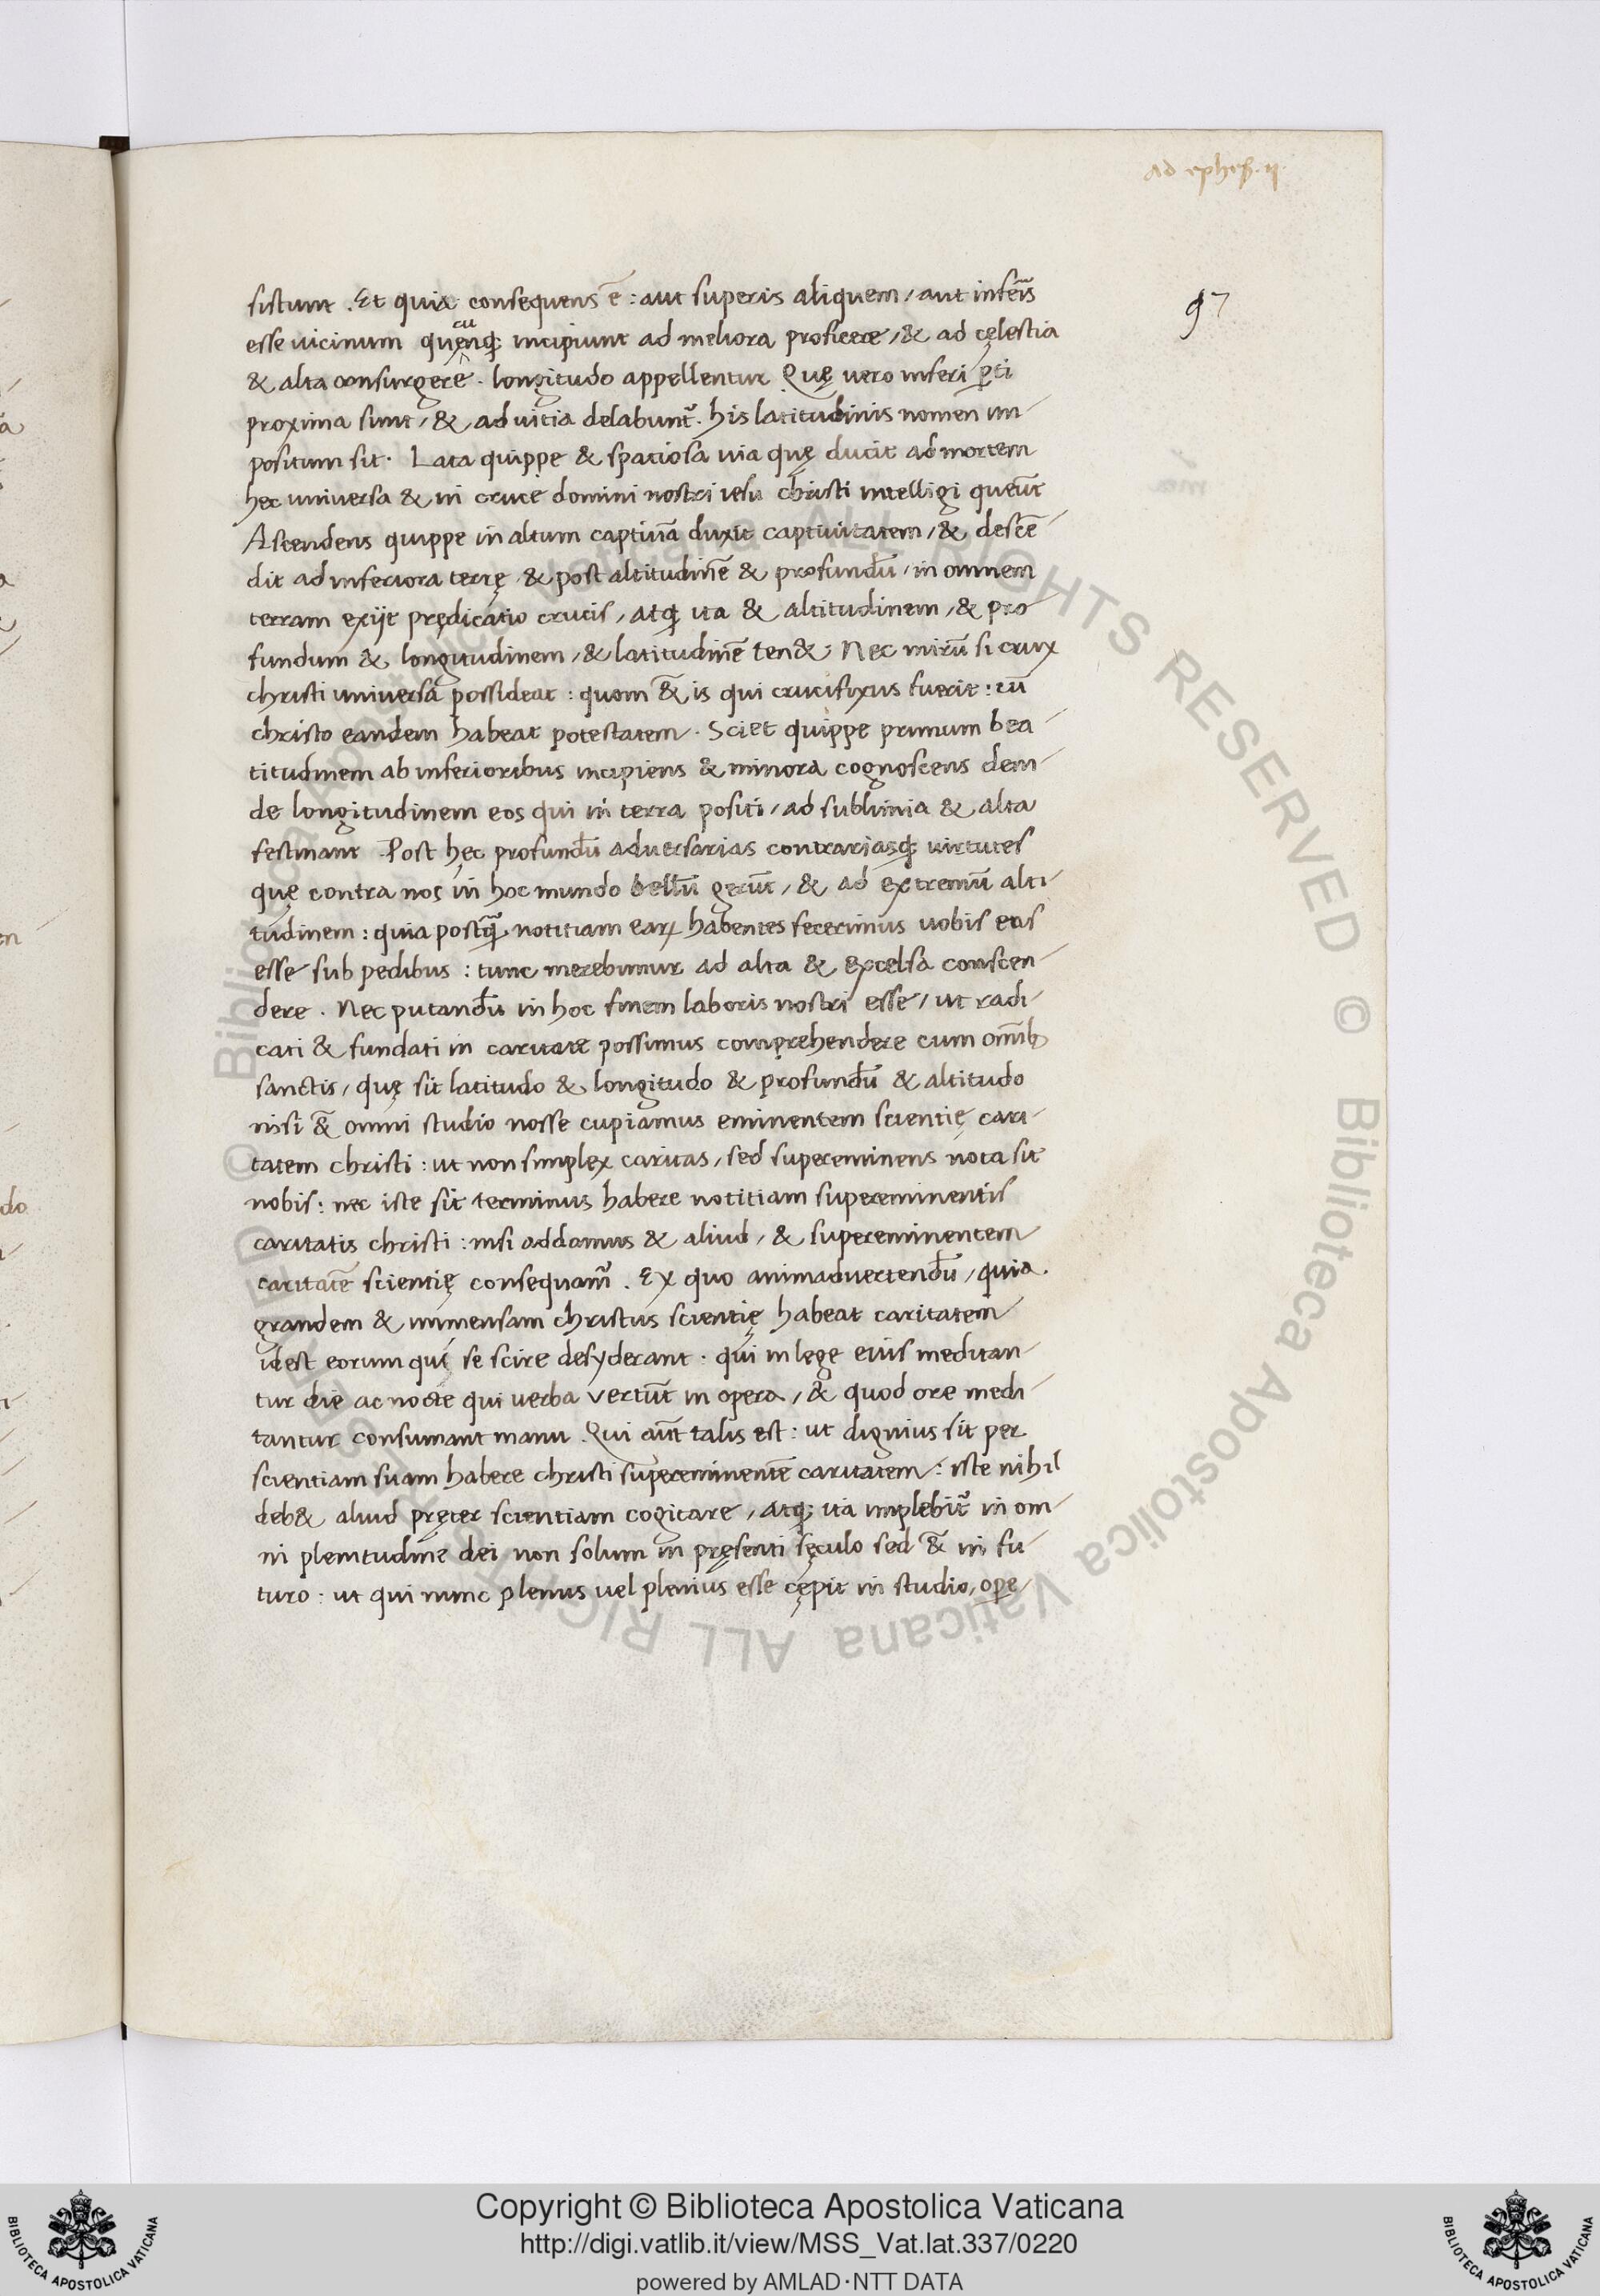 ad ephes. ii.
97
sistunt . Et quia consequens ē : aut superis aliquem / aut inferis
esse uicinum quęcunq; incipiunt ad meliora proficere / & ad cęlestia
& alta consurgere . longitudo appellentur Quę uero inferi ꝑti
proxima sunt / & ad uitia delabunt̃ . his latitudinis nomen im
positum sit . Lata quippe & spatiosa uia quę ducit ad mortem
hec uniuersa & in cruce domini nostri iesu christi intelligi queūt
Ascendens quippe in altum captiuā duxit captiuitatem / & descē
dit ad inferiora terrę & post altitudinē & profundū / in omnem
terram exijt prędicatio crucis / atq; ita & altitudinem / & pro
fundum & longitudinem / & latitudinē ten& ; Nec mirū si crux
christi uniuersa possideat : quom &̄ is qui crucifixus fuerit : cū
christo eandem habeat potestatem . Sciet quippe primum bea
titudinem ab inferioribus incipiens & minora cognoscens dein
de longitudinem eos qui in terra positi / ad sublimia & alta
festinant . Post hęc profundū aduersarias contrariasq; uirtutes
quę contra nos in hoc mundo bellū gerūt / & ad extremū alti
tudinem : quia postq̃ notitiam eaꝝ habentes fecerimus nobis eas
esse sub pedibus : tunc merebimur ad alta & excelsa conscen
dere . Nec putandū in hoc finem laboris nostri esse / ut radi
cati & fundati in caritate possimus comprehendere cum om̄ib
sanctis / quę sit latitudo & longitudo & profundū & altitudo
nisi &̄ omni studio nosse cupiamus eminentem scientię cari
tatem christi : ut non simplex caritas / sed supereminens nota sit
nobis : nec iste sit terminus habere notitiam supereminentis
caritatis christi : nisi addamus & aliud / & supereminentem
caritatē scientię consequam̃ . Ex quo animaduertendū / quia
grandem & immensam christus scientię habeat caritatem
idest eorum qui se scire desyderant . qui in lege eius meditan
tur die ac nocte qui uerba vertūt in opera / & quod ore medi
tantur consumant manu . Qui aūt talis est : ut dignius sit per
scientiam suam habere christi supereminentē caritatem : iste nihil
deb& aliud pręter scientiam cogitare / atq; ita implebit̃ in om
ni plenitudine dei non solum in pręsenti sęculo sed &̄ in fu
turo : ut qui nunc plenus uel plenius esse cępit in studio, oꝑe
Copyright © Biblioteca Apostolica Vaticana
http://digi.vatlib.it/view/MSS_Vat.lat.337/0220
powered by AMLAD·NTT DATA